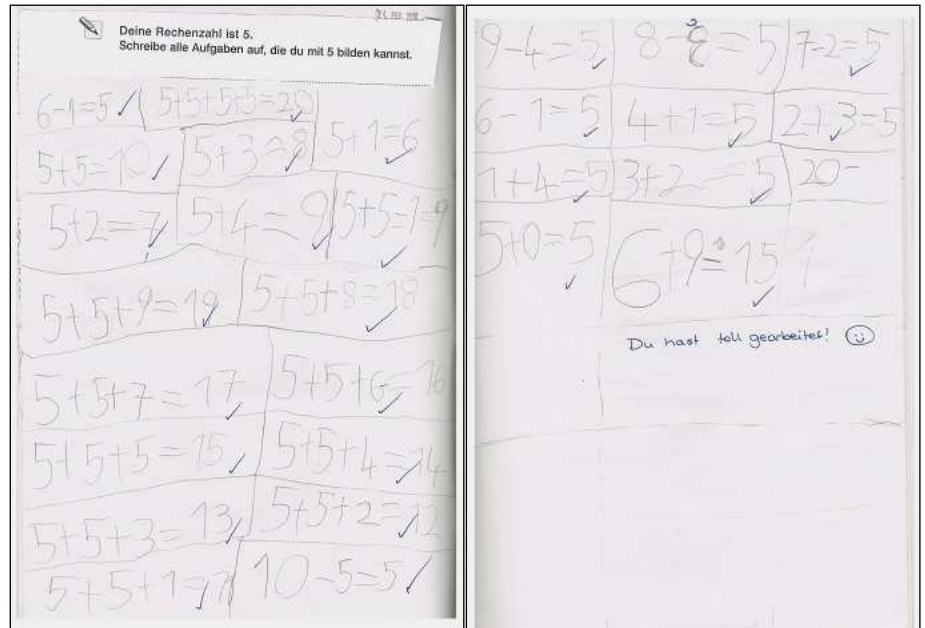 Deine Rechenzahl ist 5.
Schreibe alle Aufgaben auf, die du mit 5 bilden kannst.
6-1=5 5+5+5+5=20
5+5=10 5+3=8 5+1=6
5+2=7 5+4=9 5+5=1=9
5+5+9=19 5+5+8=18
5+5+7=17 5+5+6=16
5+5+5=15 5+5+4=14
5+5+3=13 5+5+2=12
5+5+1=11 10-5=5
9-4=5 8-3=5 7-2=5
6-1=5 4+1=5 2+3=5
1+4=5 3+2=5 20-
5+0=5 6+9=15
Du hast toll gearbeitet!